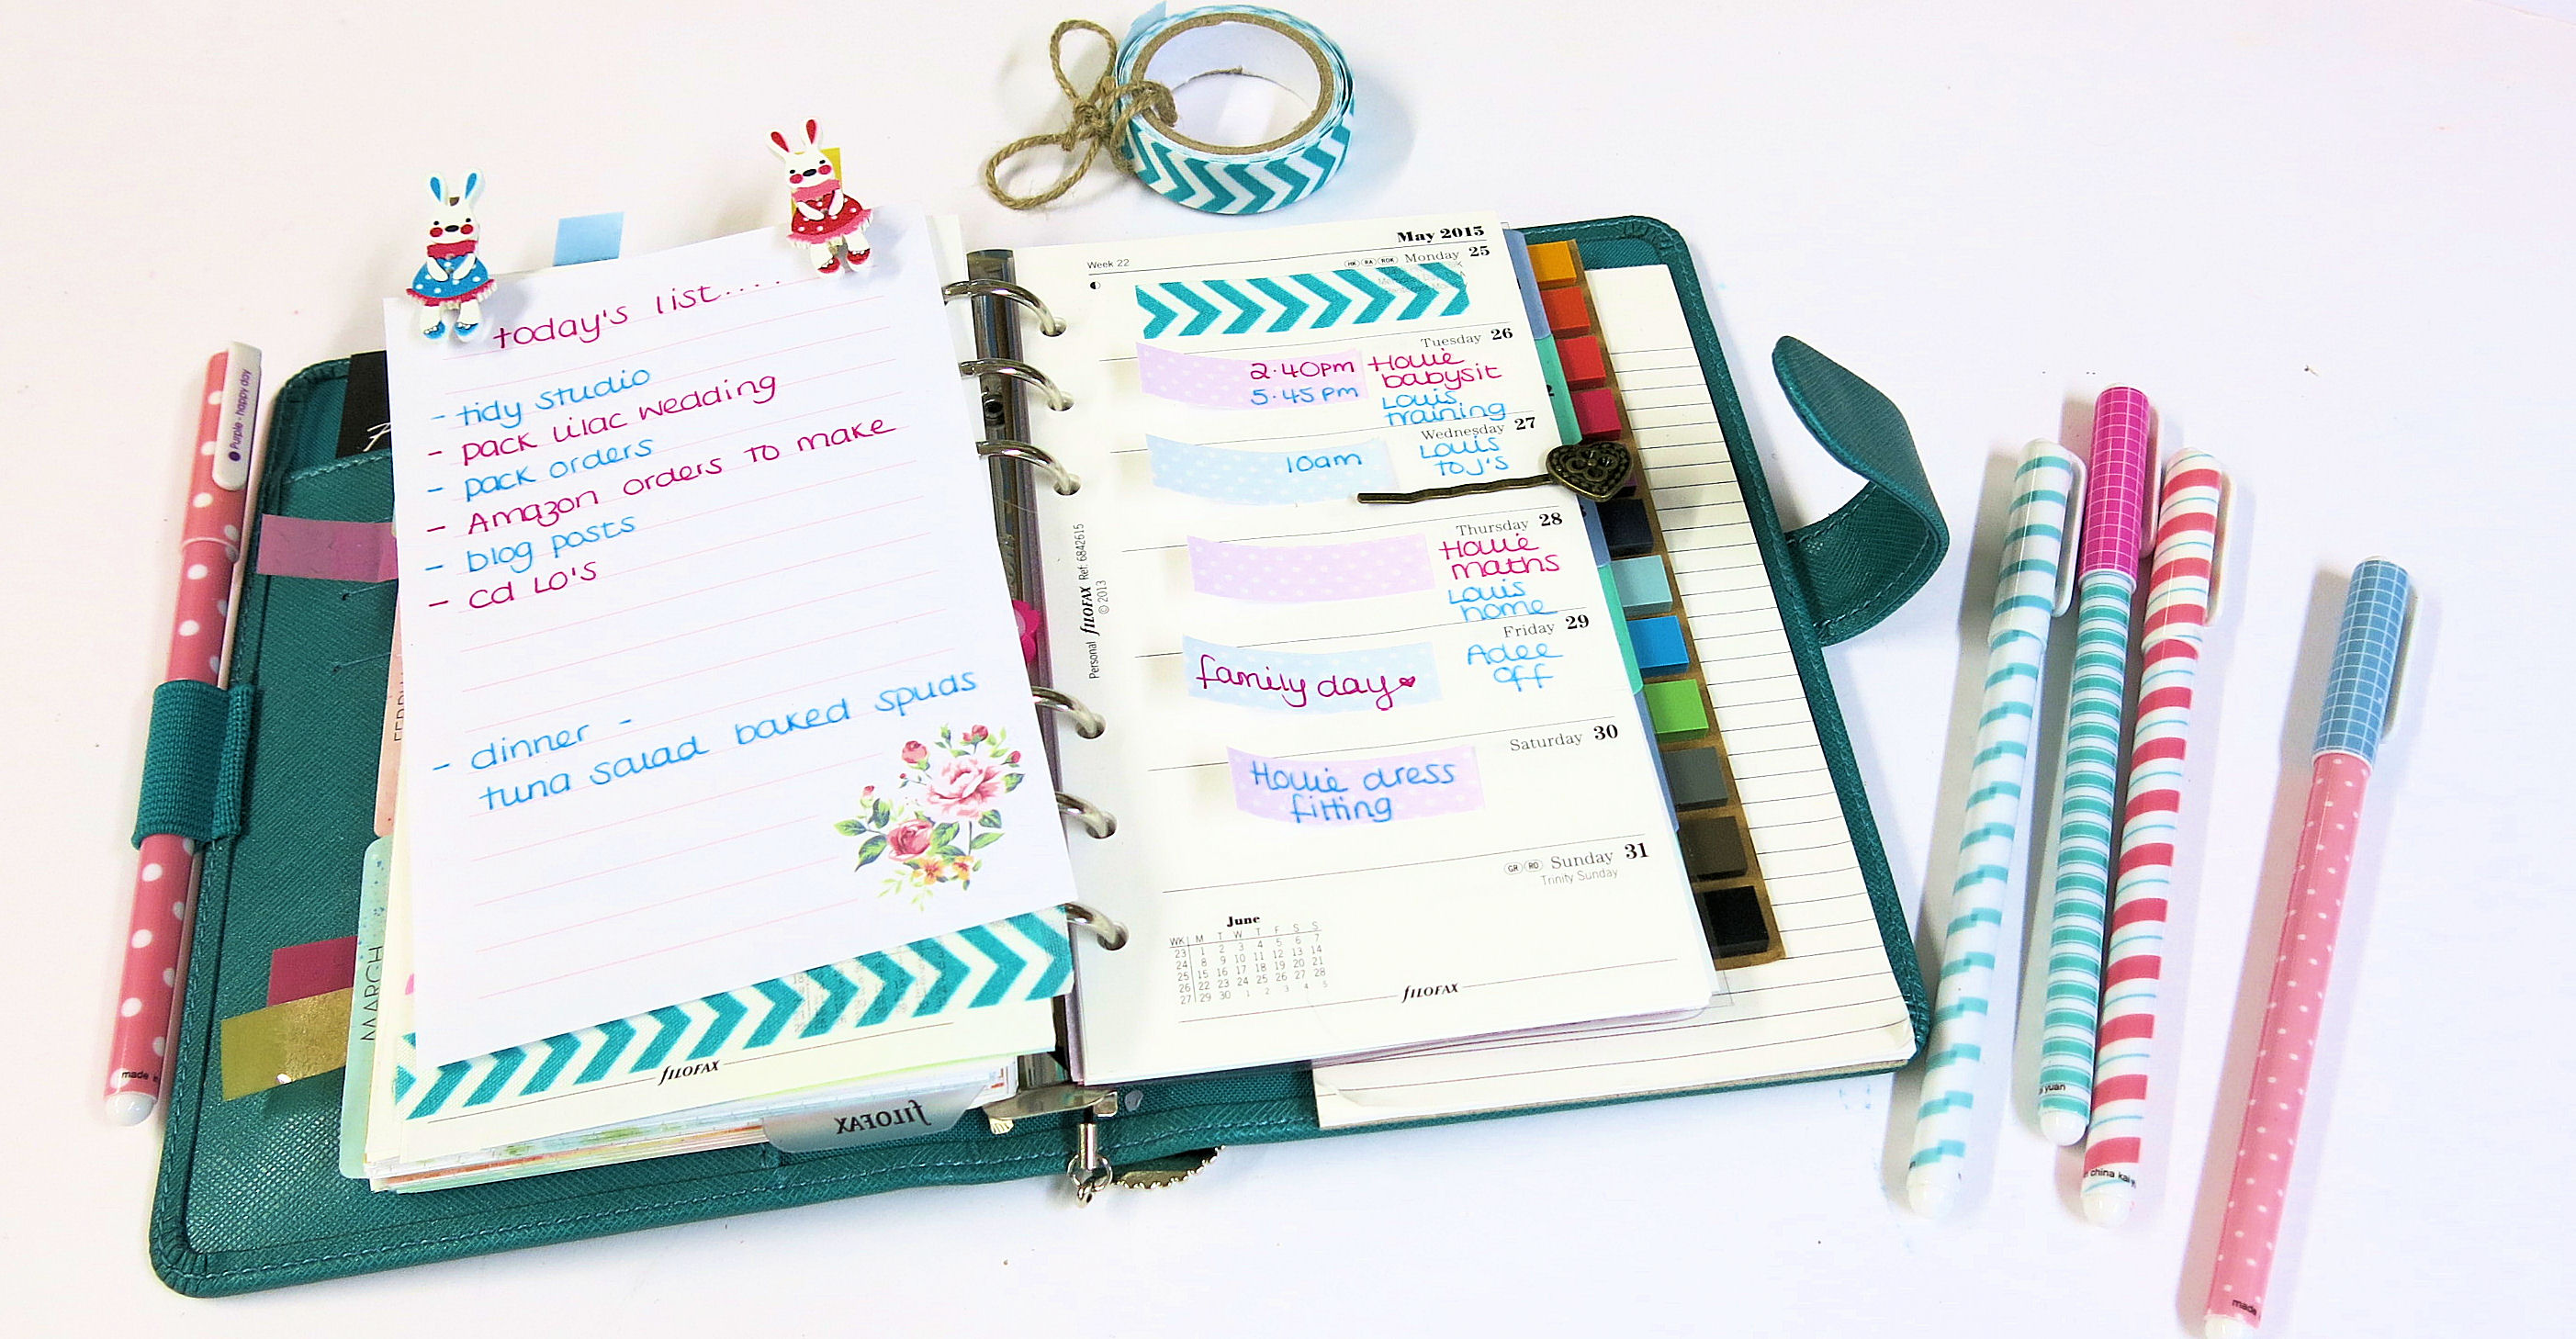 today's list....
- tidy studio
- pack lilac wedding
- pack orders
- Amazon orders to make
- blog posts
- cd LO's
- dinner -
tuna salad baked spuds
FILOFAX
FILOFAX
MARCH
Purple · happy day
made
May 2015
Week 22
HK RA RDK Monday 25
Tuesday 26
2·40pm Hollie
babysit
5·45pm Louis
training
Wednesday 27
10am Louis
to J's
Thursday 28
Hollie
maths
Louis
home
Friday 29
family day
Adee
off
Saturday 30
Hollie dress
fitting
GR RD Sunday 31
Trinity Sunday
June
WK M T W T F S S
23 1 2 3 4 5 6 7
24 8 9 10 11 12 13 14
25 15 16 17 18 19 20 21
26 22 23 24 25 26 27 28
27 29 30 1 2 3 4 5
FILOFAX
Personal FILOFAX Ref: 6842615
© 2013
yuan
china
made